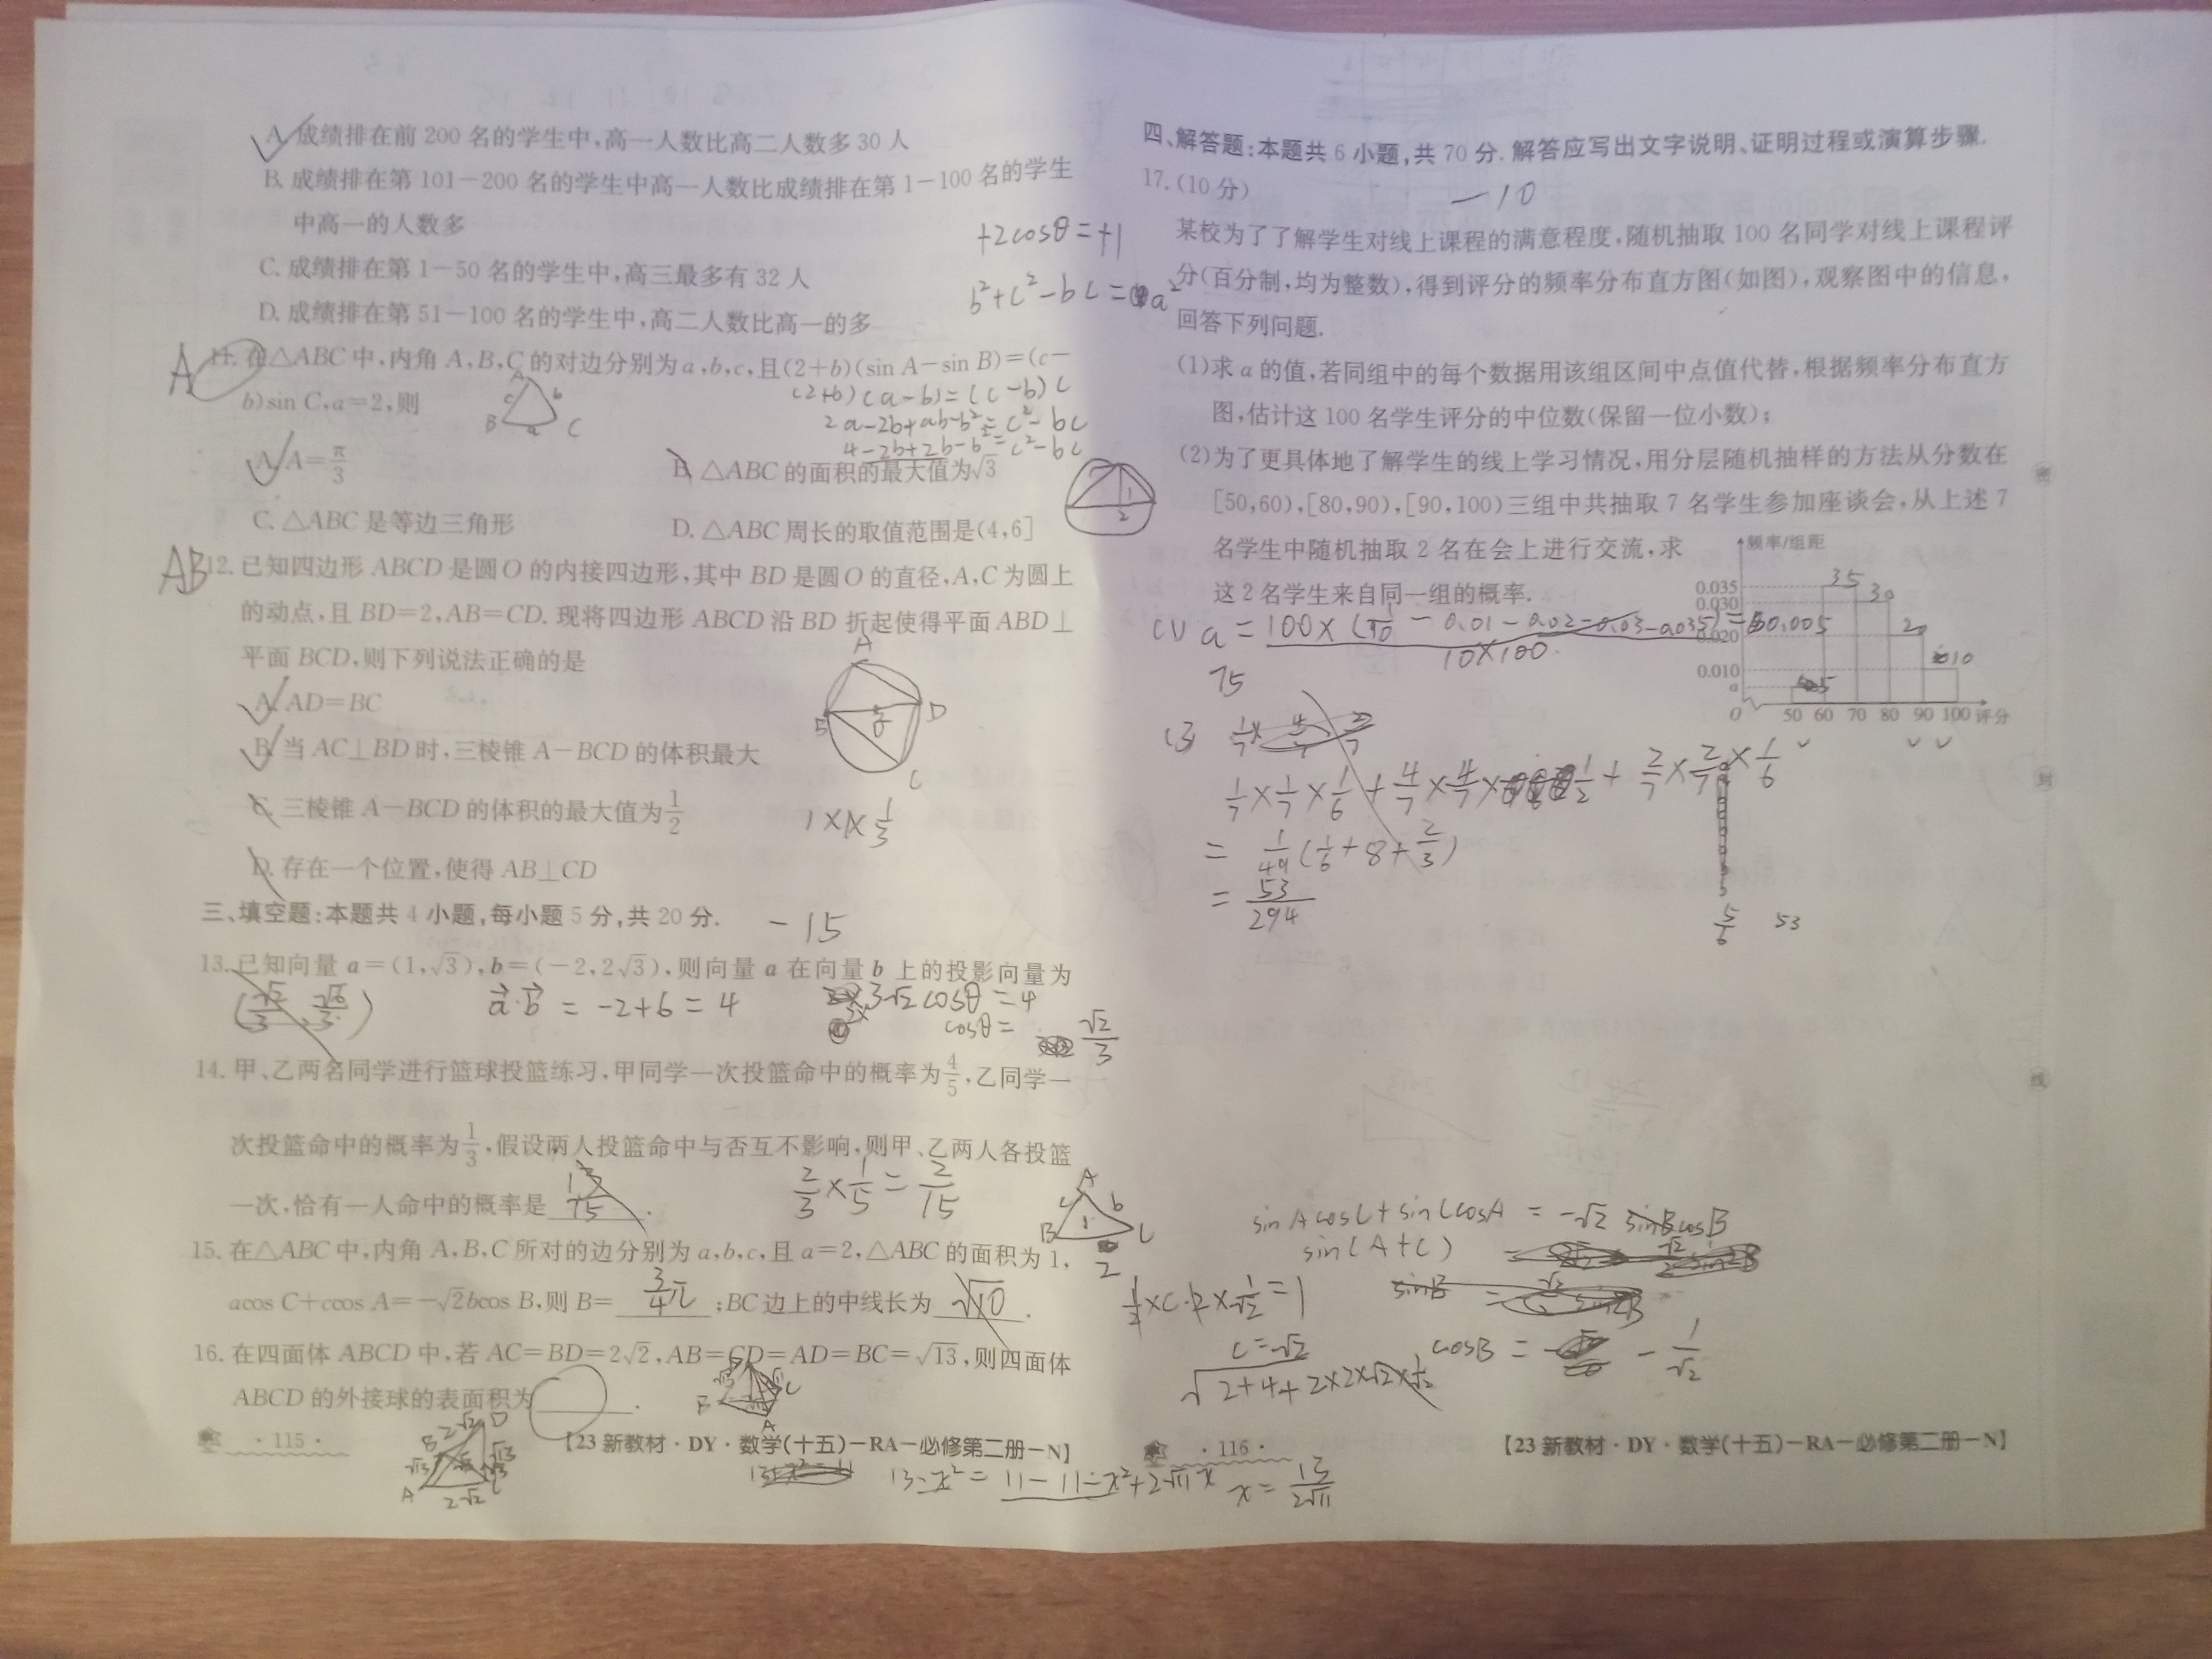 A. 成绩排在前 200 名的学生中,高一人数比高二人数多 30 人
B. 成绩排在第 101－200 名的学生中高一人数比成绩排在第 1－100 名的学生
中高一的人数多
C. 成绩排在第 1－50 名的学生中,高三最多有 32 人
D. 成绩排在第 51－100 名的学生中,高二人数比高一的多
+2cosθ=+1
b²+c²-bc=a²
A
11. 在△ABC 中,内角 A,B,C 的对边分别为 a,b,c,且(2+b)(sin A－sin B)=(c－
b)sin C,a=2,则
A
c b
B a C
(2+b)(a-b)=(c-b)c
2a-2b+ab-b²=c²-bc
4-2b+2b-b²=c²-bc
A. A=π/3
B. △ABC 的面积的最大值为√3
C. △ABC 是等边三角形
D. △ABC 周长的取值范围是(4,6]
1
2
AB
12. 已知四边形 ABCD 是圆 O 的内接四边形,其中 BD 是圆 O 的直径,A,C 为圆上
的动点,且 BD=2,AB=CD. 现将四边形 ABCD 沿 BD 折起使得平面 ABD⊥
平面 BCD,则下列说法正确的是
A
B D
C
A. AD=BC
B. 当 AC⊥BD 时,三棱锥 A－BCD 的体积最大
C. 三棱锥 A－BCD 的体积的最大值为1/2
1×1×1/3
D. 存在一个位置,使得 AB⊥CD
三、填空题:本题共 4 小题,每小题 5 分,共 20 分.
-15
13. 已知向量 a=(1,√3),b=(－2,2√3),则向量 a 在向量 b 上的投影向量为
(√2/3, √6/3)
a·b = -2+6=4
3√2 cosθ=4
cosθ= √2/3
14. 甲、乙两名同学进行篮球投篮练习,甲同学一次投篮命中的概率为4/5,乙同学一
次投篮命中的概率为1/3,假设两人投篮命中与否互不影响,则甲、乙两人各投篮
一次,恰有一人命中的概率是 13/15 .
2/3×1/5=2/15
15. 在△ABC 中,内角 A,B,C 所对的边分别为 a,b,c,且 a=2,△ABC 的面积为 1,
acos C+ccos A=－√2bcos B,则 B= 3/4π ;BC 边上的中线长为 √10 .
A
c b
B 1 C
2
16. 在四面体 ABCD 中,若 AC=BD=2√2,AB=CD=AD=BC=√13,则四面体
ABCD 的外接球的表面积为 .
· 115 ·
【23 新教材·DY·数学(十五)－RA－必修第二册－N】
13-x²=11-11-x²+2√11x x=13/2√11
四、解答题:本题共 6 小题,共 70 分. 解答应写出文字说明、证明过程或演算步骤.
17. (10 分)
-10
某校为了了解学生对线上课程的满意程度,随机抽取 100 名同学对线上课程评
分(百分制,均为整数),得到评分的频率分布直方图(如图),观察图中的信息,
回答下列问题.
(1)求 a 的值,若同组中的每个数据用该组区间中点值代替,根据频率分布直方
图,估计这 100 名学生评分的中位数(保留一位小数);
(2)为了更具体地了解学生的线上学习情况,用分层随机抽样的方法从分数在
[50,60),[80,90),[90,100)三组中共抽取 7 名学生参加座谈会,从上述 7
名学生中随机抽取 2 名在会上进行交流,求
这 2 名学生来自同一组的概率.
频率/组距
0.035
0.030
0.020
0.010
a
O 50 60 70 80 90 100 评分
5 35 30 20 10
(1) a = 100×(1/10-0.01-0.02-0.03-0.035)/10×100 = 0.005
75
1/7×1/7×1/6+4/7×4/7×1/2+2/7×2/7×1/6
= 1/49(1/6+8+2/3)
= 53/294
5/6 53
sinAcosC+sinCcosA = -√2 sinBcosB
sin(A+C)
1/2×c·2×1/√2=1
c=√2
cosB = -1/√2
√2+4+2×2×√2×1/√2
· 116 ·
【23 新教材·DY·数学(十五)－RA－必修第二册－N】
密
封
线